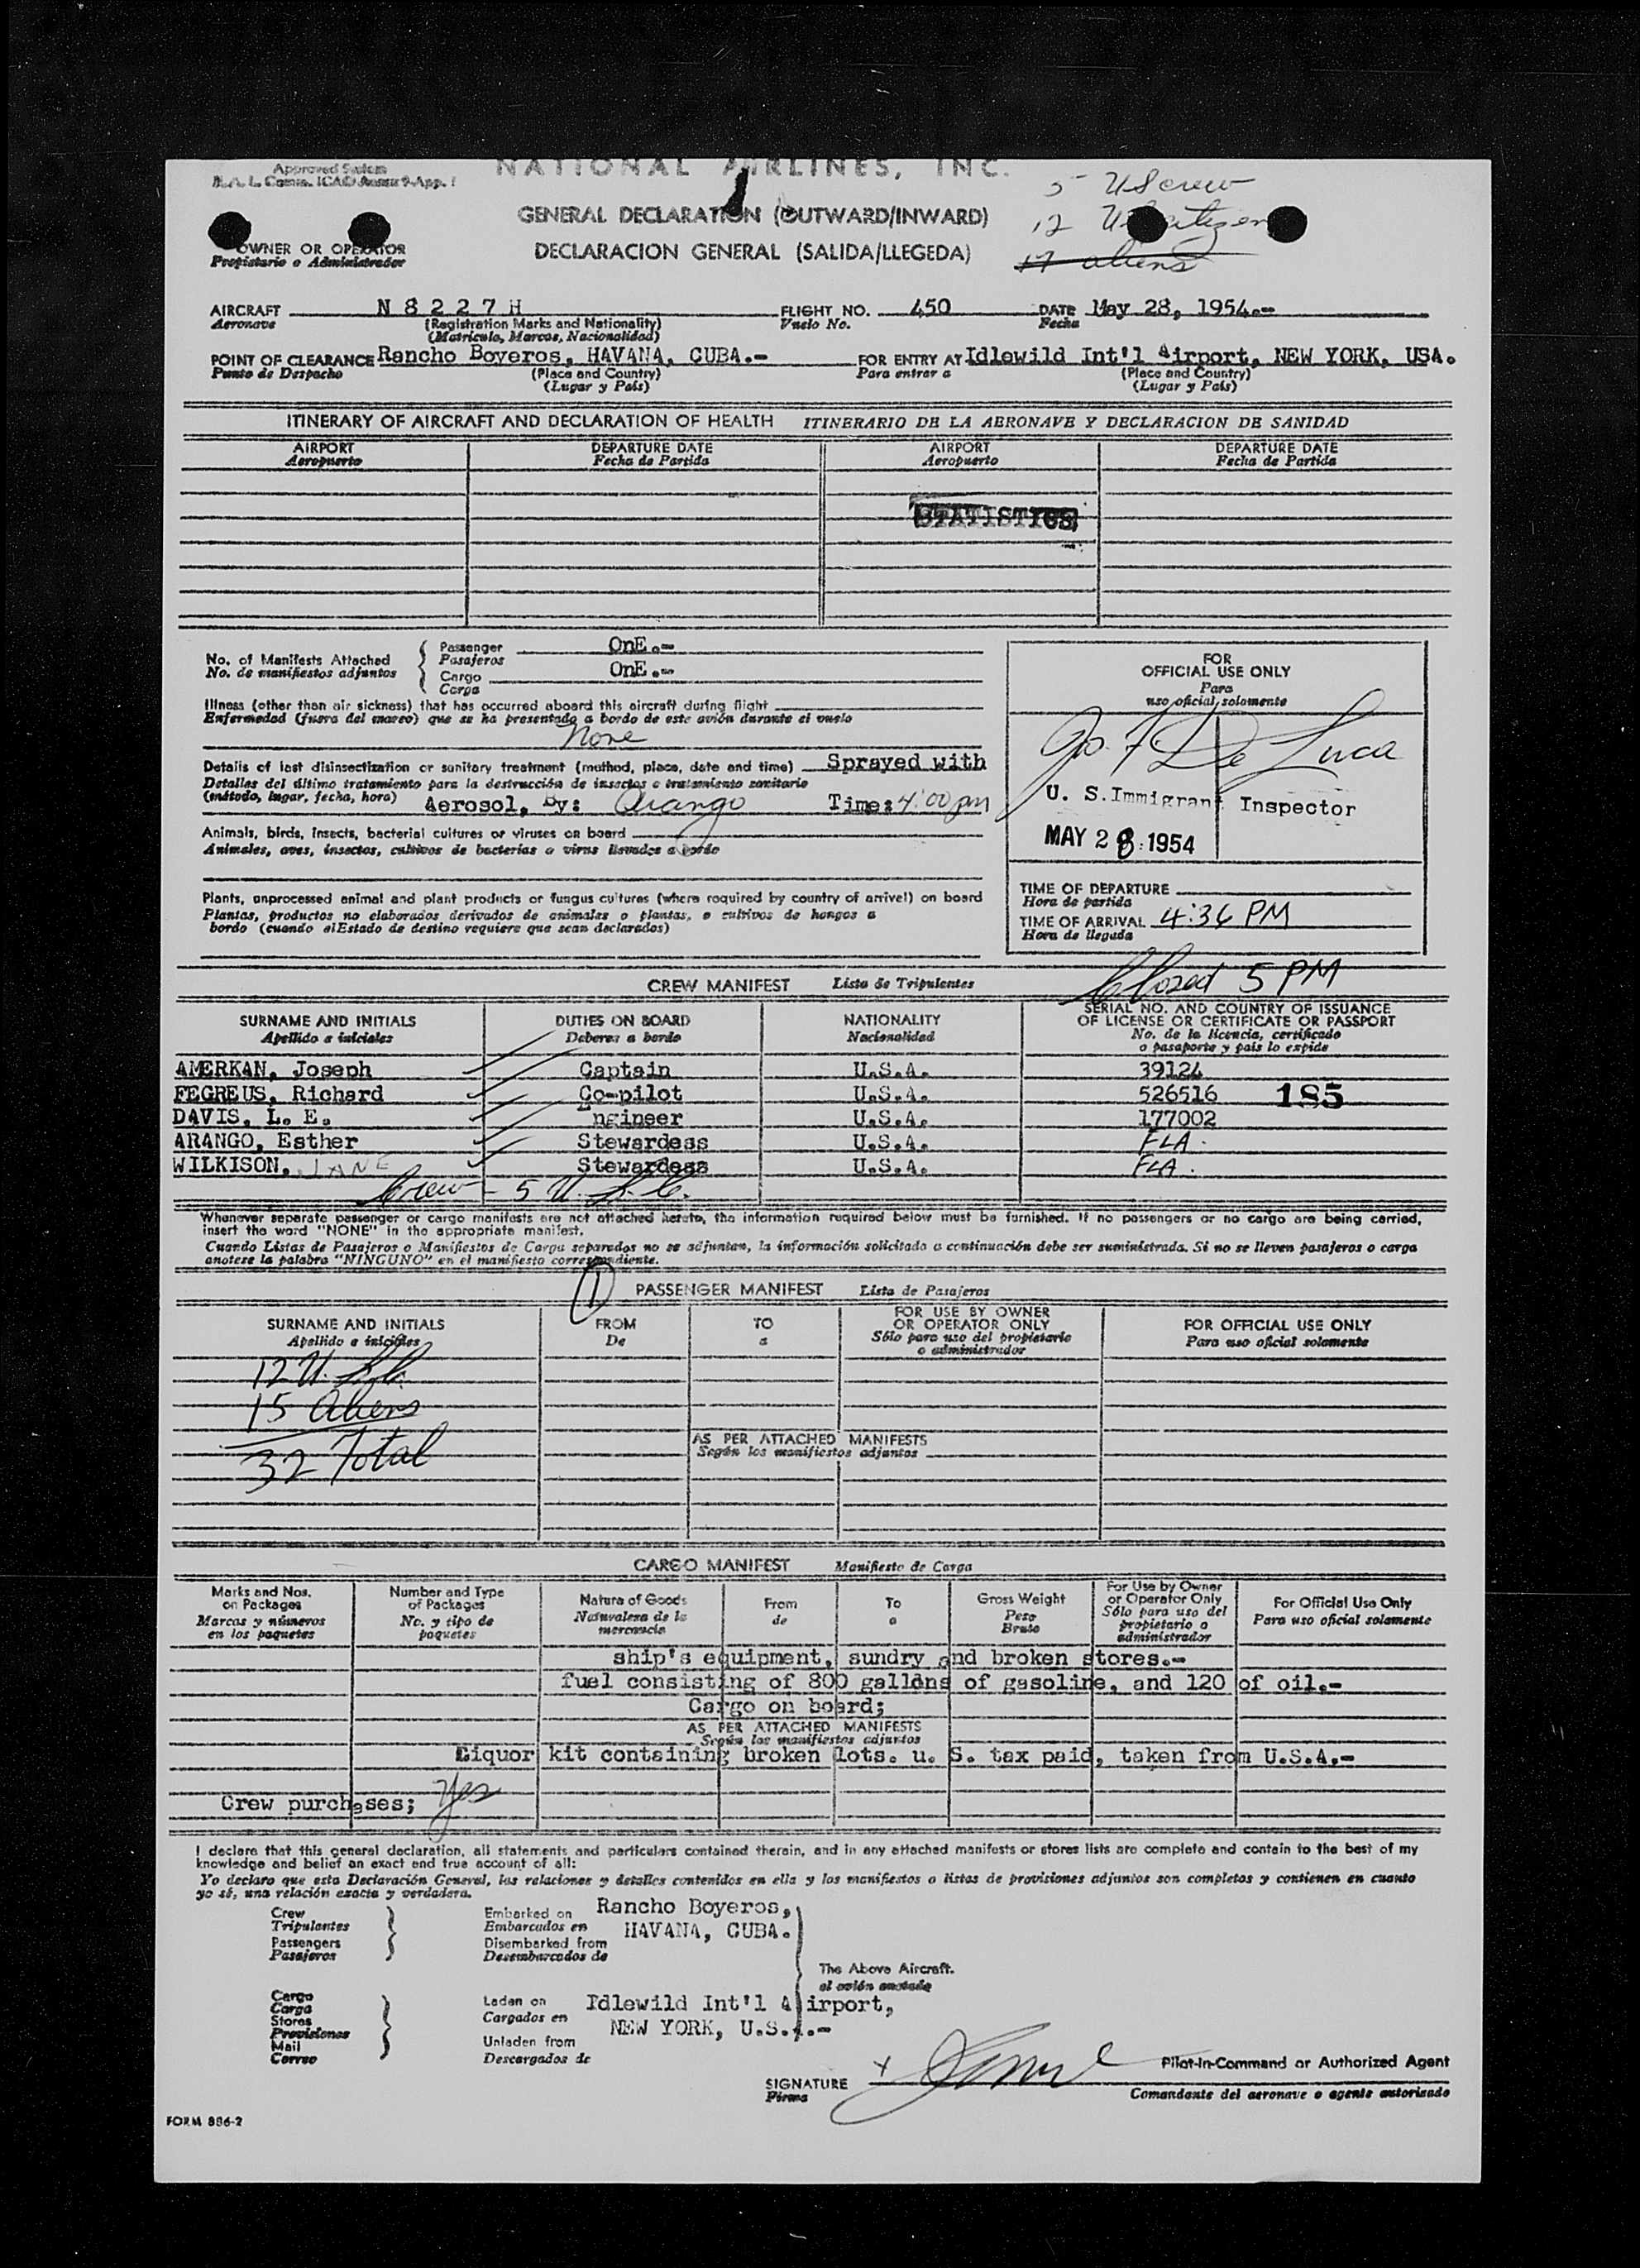 Approved System
NATIONAL AIRLINES, INC.
5 US crew
GENERAL DECLARATION (OUTWARD/INWARD)
12 US citizen
OWNER OR OPERATOR
Propietario o Administrador
DECLARACION GENERAL (SALIDA/LLEGEDA)
17 aliens
AIRCRAFT N 8 2 2 7 H FLIGHT NO. 450 DATE May 28, 1954.-
Aeronave (Registration Marks and Nationality) Vuelo No. Fecha
(Matricula, Marcas, Nacionalidad)
POINT OF CLEARANCE Rancho Boyeros, HAVANA, CUBA.- FOR ENTRY AT Idlewild Int'l Airport, NEW YORK, USA.
Punto de Despacho (Place and Country) Para entrar a (Place and Country)
(Lugar y País) (Lugar y País)
ITINERARY OF AIRCRAFT AND DECLARATION OF HEALTH ITINERARIO DE LA AERONAVE Y DECLARACION DE SANIDAD
AIRPORT DEPARTURE DATE AIRPORT DEPARTURE DATE
Aeropuerto Fecha de Partida Aeropuerto Fecha de Partida
STATISTICS
No. of Manifests Attached
No. de manifiestos adjuntos
Passenger OnE.-
Pasajeros
Cargo OnE.-
Carga
Illness (other than air sickness) that has occurred aboard this aircraft during flight
Enfermedad (fuera del mareo) que se ha presentado a bordo de este avión durante el vuelo
None
Details of last disinsectization or sanitary treatment (method, place, date and time) Sprayed with
Detalles del último tratamiento para la destrucción de insectos o tratamiento sanitario
(método, lugar, fecha, hora) Aerosol, By: Arango Time: 4:00 pm
Animals, birds, insects, bacterial cultures or viruses on board
Animales, aves, insectos, cultivos de bacterias o virus llevados a bordo
Plants, unprocessed animal and plant products or fungus cultures (where required by country of arrival) on board
Plantas, productos no elaborados derivados de animales o plantas, o cultivos de hongos a
bordo (cuando el Estado de destino requiere que sean declarados)
FOR
OFFICIAL USE ONLY
Para
uso oficial solamente
Jo. F. De Luca
U. S. Immigrant Inspector
MAY 28 1954
TIME OF DEPARTURE
Hora de partida
TIME OF ARRIVAL 4:36 PM
Hora de llegada
Closed 5 PM
CREW MANIFEST Lista de Tripulantes
SURNAME AND INITIALS DUTIES ON BOARD NATIONALITY SERIAL NO. AND COUNTRY OF ISSUANCE
OF LICENSE OR CERTIFICATE OR PASSPORT
Apellido e iniciales Deberes a bordo Nacionalidad No. de la licencia, certificado
o pasaporte y país lo expide
AMERKAN, Joseph Captain U.S.A. 39124
FEGREUS, Richard Co-pilot U.S.A. 526516 185
DAVIS, L. E. Engineer U.S.A. 177002
ARANGO, Esther Stewardess U.S.A. FLA.
WILKISON, JANE Stewardess U.S.A. FLA.
Crew - 5 U.S.C.
Whenever separate passenger or cargo manifests are not attached hereto, the information required below must be furnished. If no passengers or no cargo are being carried,
insert the word "NONE" in the appropriate manifest.
Cuando Listas de Pasajeros o Manifiestos de Carga separados no se adjuntan, la información solicitada a continuación debe ser suministrada. Si no se lleven pasajeros o carga
anotese la palabra "NINGUNO" en el manifiesto correspondiente.
1
PASSENGER MANIFEST Lista de Pasajeros
SURNAME AND INITIALS FROM TO FOR USE BY OWNER OR OPERATOR ONLY FOR OFFICIAL USE ONLY
Apellido e iniciales De a Sólo para uso del propietario o administrador Para uso oficial solamente
12 U.S.C.
15 Aliens
32 Total
AS PER ATTACHED MANIFESTS
Según los manifiestos adjuntos
CARGO MANIFEST Manifiesto de Carga
Marks and Nos. on Packages Number and Type of Packages Nature of Goods From To Gross Weight For Use by Owner or Operator Only For Official Use Only
Marcas y números en los paquetes No. y tipo de paquetes Naturaleza de la mercancia de a Peso Bruto Sólo para uso del propietario o administrador Para uso oficial solamente
ship's equipment, sundry and broken stores.-
fuel consisting of 800 gallons of gasoline, and 120 of oil.-
Cargo on board;
AS PER ATTACHED MANIFESTS
Según los manifiestos adjuntos
Liquor kit containing broken lots. u. S. tax paid, taken from U.S.A.-
Crew purchases; yes
I declare that this general declaration, all statements and particulars contained therein, and in any attached manifests or stores lists are complete and contain to the best of my
knowledge and belief an exact and true account of all:
Yo declaro que esta Declaración General, las relaciones y detalles contenidos en ella y los manifiestos o listas de provisiones adjuntos son completos y contienen en cuanto
yo sé, una relación exacta y verdadera.
Crew Embarked on Rancho Boyeros,
Tripulantes Embarcados en HAVANA, CUBA.
Passengers Disembarked from
Pasajeros Desembarcados de
The Above Aircraft.
el avión anotado
Cargo
Carga Laden on Idlewild Int'l Airport,
Stores Cargados en
Provisiones NEW YORK, U.S.A.-
Mail Unladen from
Correo Descargados de
X
SIGNATURE Pilot-in-Command or Authorized Agent
Firma Comandante del aeronave o agente autorizado
FORM 886-2